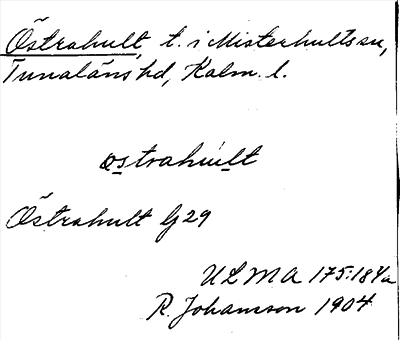 Östrahult, t. i Misterhults sn,
Tunaläns hd, Kalm. l.
östrahult
Östrahult G 29
ULMA 175:184a
R. Johanson 1904